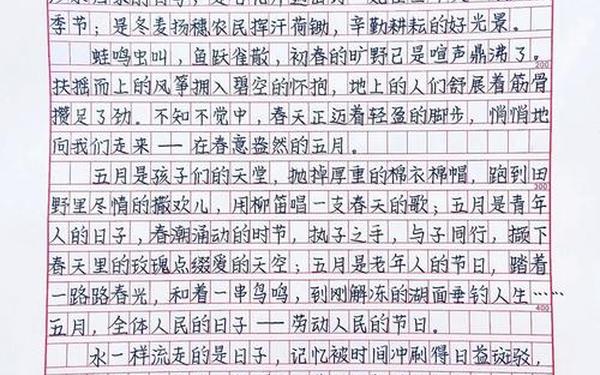 季节；是冬麦扬穗农民挥汗荷锄，辛勤耕耘的好光景。
蛙鸣虫叫，鱼跃雀散，初春的旷野已是喧声鼎沸了。
200
扶摇而上的风筝拥入碧空的怀抱，地上的人们舒展着筋骨
攒足了劲。不知不觉中，春天正迈着轻盈的脚步，悄悄地
向我们走来——在春意盎然的五月。
五月是孩子们的天堂，抛掉厚重的棉衣棉帽，跑到田
300
野里尽情的撒欢儿，用柳笛唱一支春天的歌；五月是青年
人的日子，春潮涌动的时节，执子之手，与子同行，撷下
春天里的玫瑰点缀爱的天空；五月是老年人的节日，踏着
一路路春光，和着一串鸟鸣，到刚解冻的湖面垂钓人生……
400
五月，全体人民的日子——劳动人民的节日。
水一样流走的是日子，记忆被时间冲刷得日益斑驳，